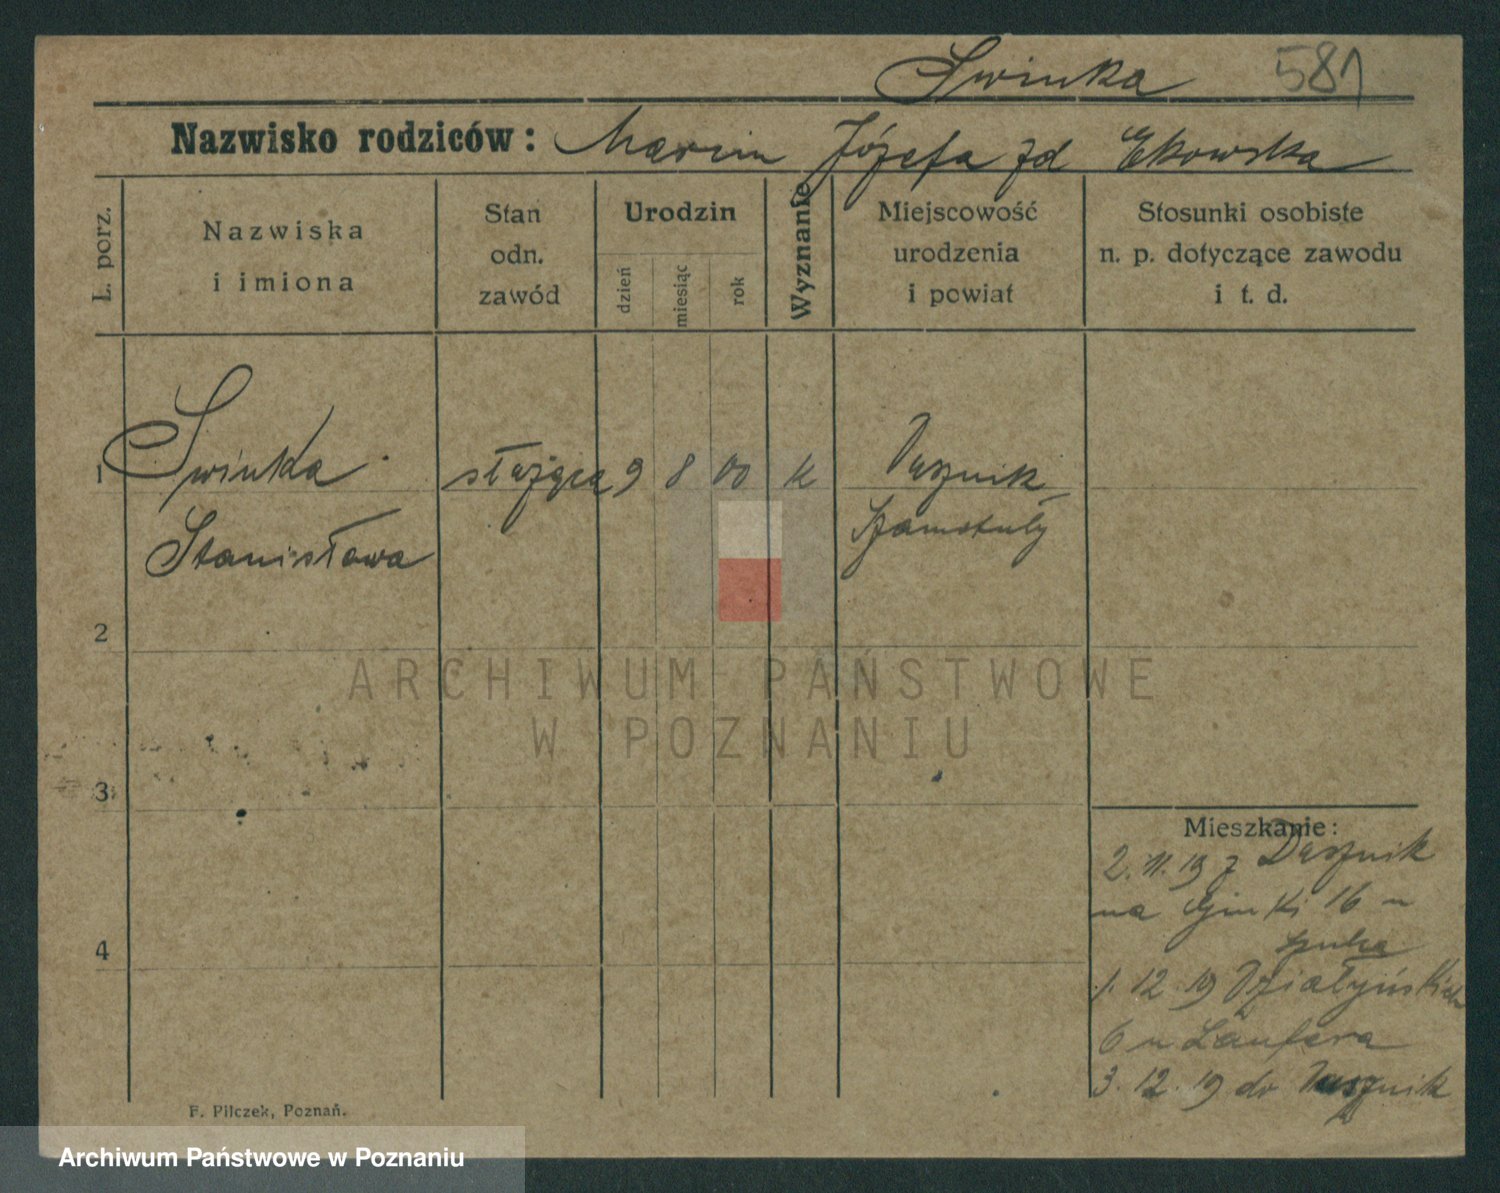 Swinka 581
Nazwisko rodziców: Marcin Józefa zd Ekowska
L. porz.
Nazwiska
i imiona
Stan
odn.
zawód
Urodzin
dzień
miesiąc
rok
Wyznanie
Miejscowość
urodzenia
i powiat
Stosunki osobiste
n. p. dotyczące zawodu
i t. d.
1 Swinka służąca 9 8 00 k Dusznik
Stanisława Szamotuły
2
ARCHIWUM PAŃSTWOWE
W POZNANIU
3
Mieszkanie:
2. 11. 19 z Dusznik
na 16 u
4
1. 12. 19 Działyńskich
6 u Laufera
3. 12. 19 do Dusznik
F. Pilczek, Poznań.
Archiwum Państwowe w Poznaniu